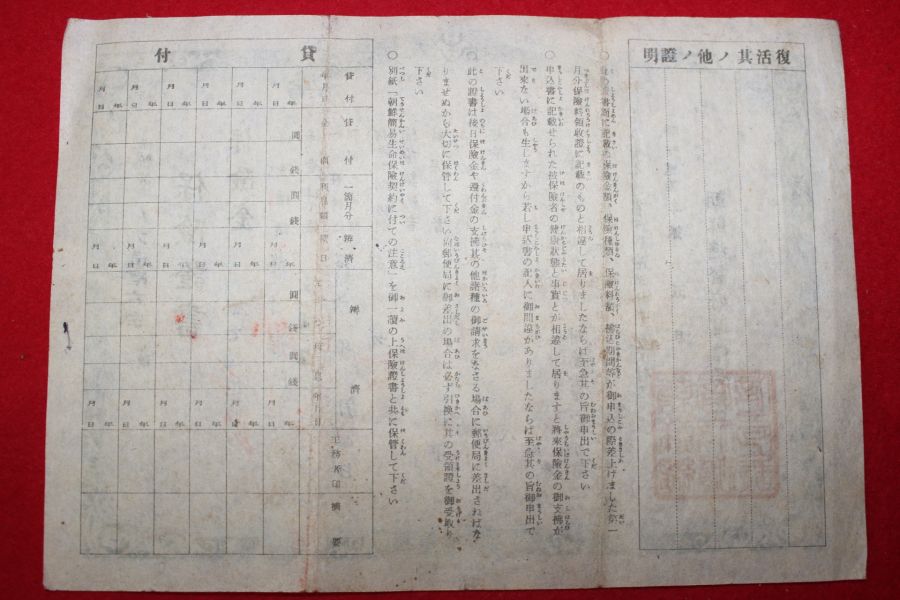 復活其ノ他ノ證明
○此の證書面に記載の保險金額、保險種類、保險料額、拂込期間等が御申込の際差上げました第一
月分保險料領收證に記載のものと相違して居りましたならば至急其の旨御申出で下さい
○申込書に記載せられた被保險者の健康狀態と事實とが相違して居りますと將來保險金の御支拂が
出來ない場合も生じますから若し申込書の記入に御間違がありましたならば至急其の旨御申出で
下さい
○此の證書は後日保險金や還付金の支拂其の他諸種の御請求をなさる場合に郵便局に差出さねばな
りませぬから大切に保管して下さい尙郵便局に御差出の場合は必ず引換に其の受領證を御受取り
下さい
○別紙「朝鮮簡易生命保險契約に付ての注意」を御一讀の上保險證書と共に保管して下さい
貸付
貸付
年月日
貸付
金
一箇月分
辨濟
辨濟
主務者印
摘要
年月日 年月日 年月日 年月日 年月日 年月日
圓錢
圓錢
年月日 年月日 年月日 年月日 年月日 年月日
圓錢
圓錢
年月日 年月日 年月日 年月日 年月日 年月日